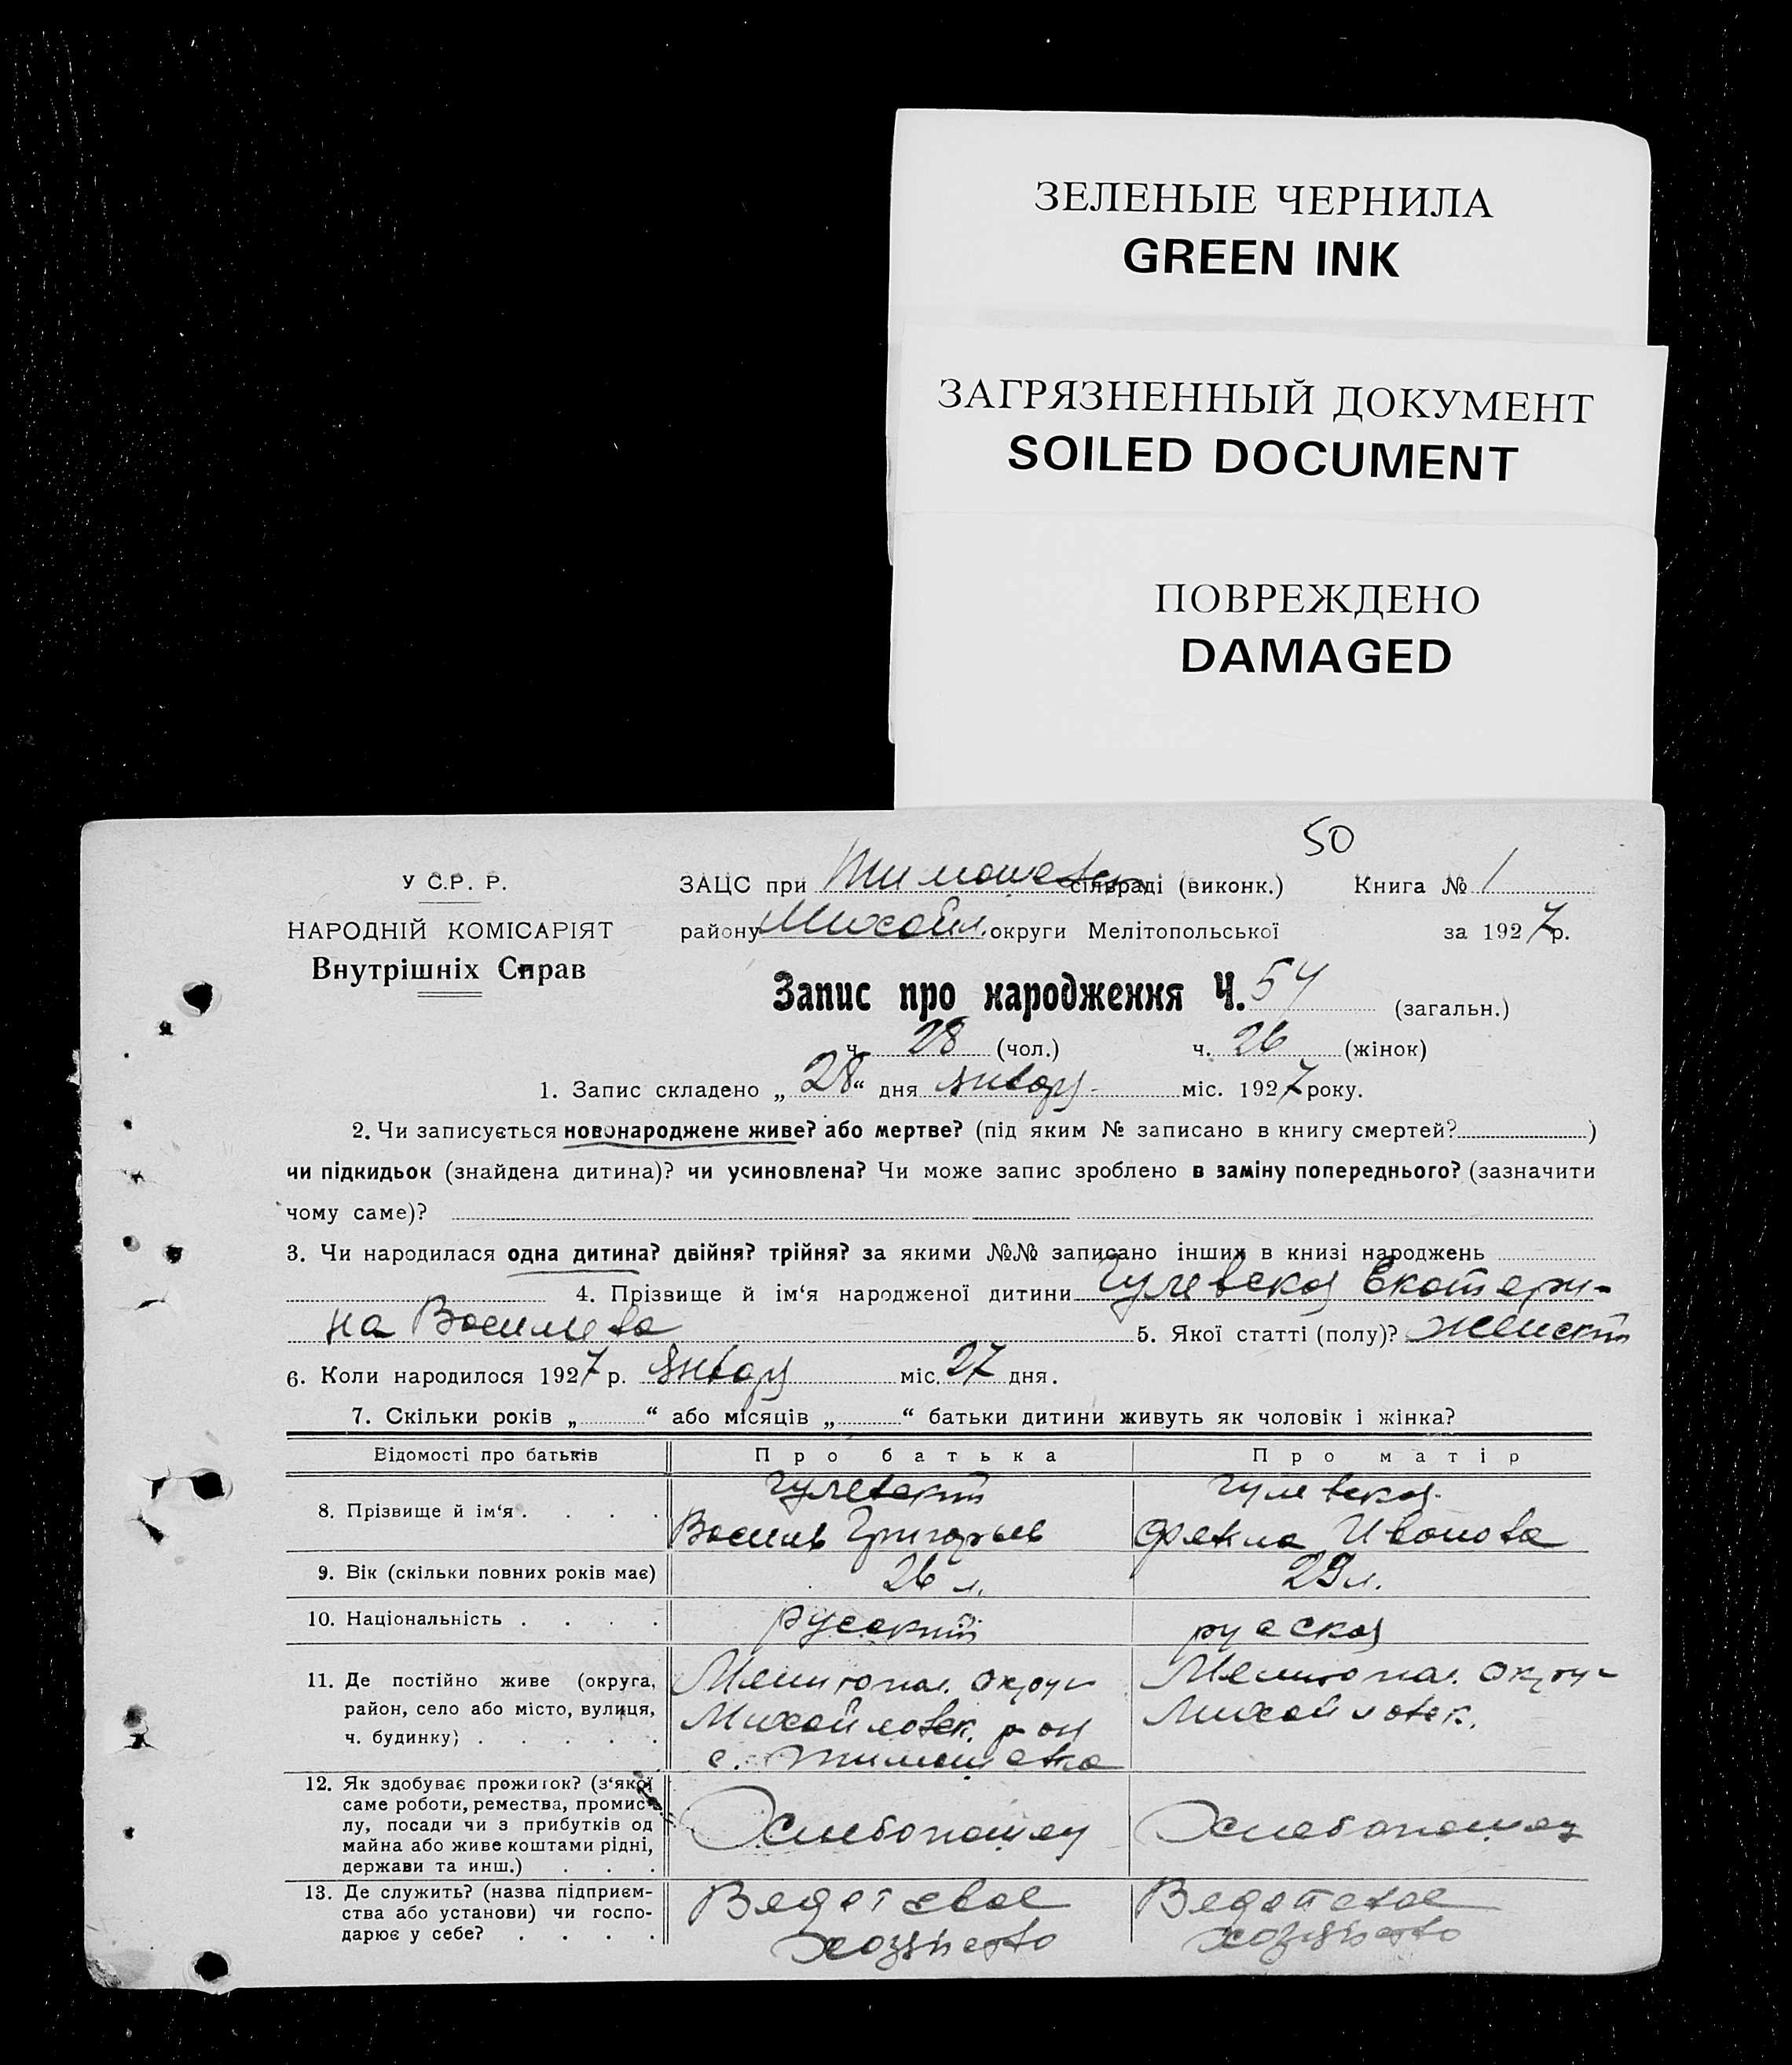 ЗЕЛЕНЫЕ ЧЕРНИЛА
GREEN INK
ЗАГРЯЗНЕННЫЙ ДОКУМЕНТ
SOILED DOCUMENT
ПОВРЕЖДЕНО
DAMAGED
50
У С.Р. Р.
НАРОДНІЙ КОМІСАРІЯТ
Внутрішніх Справ
ЗАЦС при Тимошевск сільраді (виконк.) Книга № 1
району Михайл. округи Мелітопольської за 1927 р.
Запис про народження Ч. 54 (загальн.)
ч. 28 (чол.) ч. 26 (жінок)
1. Запис складено „ 28 “ дня января міс. 1927 року.
2. Чи записується новонароджене живе? або мертве? (під яким № записано в книгу смертей? )
чи підкидьок (знайдена дитина)? чи усиновлена? Чи може запис зроблено в заміну попереднього? (зазначити
чому саме)?
3. Чи народилася одна дитина? двійня? трійня? за якими №№ записано інших в книзі народжень
4. Прізвище й ім‘я народженої дитини Гулевская Екатери-
на Васильева 5. Якої статті (полу)? женский
6. Коли народилося 1927 р. января міс. 27 дня.
7. Скільки років „ “ або місяців „ “ батьки дитини живуть як чоловік і жінка?
Відомості про батьків Про батька Про матір
8. Прізвище й ім‘я . . . . Гулевский Гулевская
Василь Григорьев Фекла Иванова
9. Вік (скільки повних років має) 26 л. 29 л.
10. Національність . . . . русский руская
11. Де постійно живе (округа,
район, село або місто, вулиця,
ч. будинку) . . . . .
Мелитопол. округ
Михайловск. р-он
с. Тимошевка
Мелитопол. округ
Михайловск.
12. Як здобуває прожиток? (з‘якої
саме роботи, ремества, промис-
лу, посади чи з прибутків од
майна або живе коштами рідні,
держави та инш.) . . .
Хлебопашец Хлебопашец
13. Де служить? (назва підприєм-
ства або установи) чи госпо-
дарює у себе? . . . .
свое
хозяйство
хозяйство